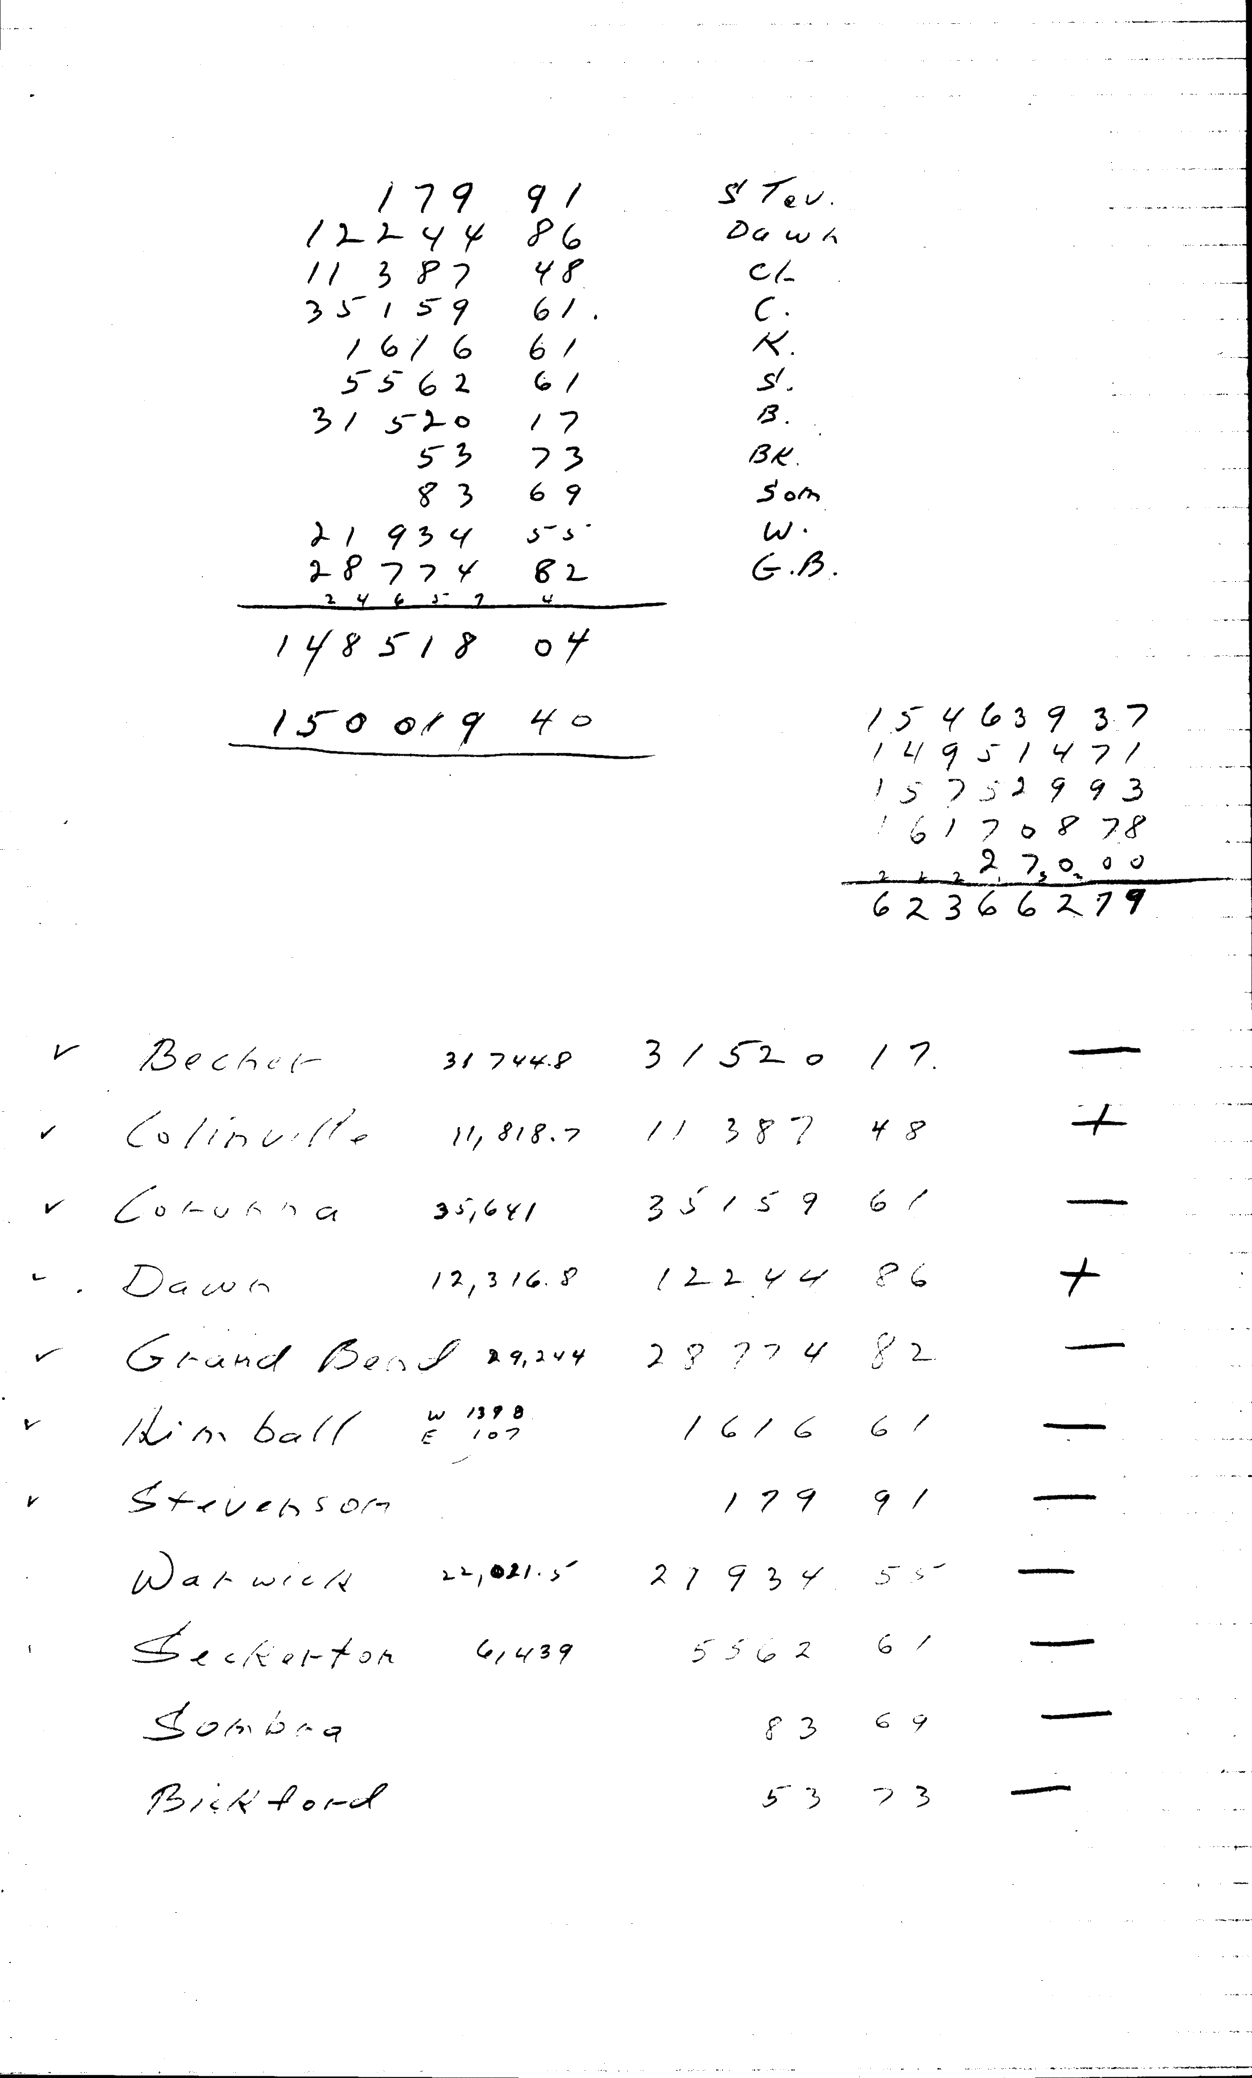 179 91 STev.
12244 86 Dawn
11387 48 CL
35159 61. C.
1616 61 K.
5562 61 S.
31520 17 B.
53 73 BK.
83 69 Som
21934 55 W.
28774 82 G.B.
2 4 6 5 7 4
148518 04
150019 40
15463937
14951471
15752993
16170878
27000
62366279
✓ Becher 31744.8 31520 17. —
✓ Colinville 11,818.7 11387 48 +
✓ Corunna 35,641 35159 61 —
✓ Dawn 12,316.8 12244 86 +
✓ Grand Bend 29,244 28774 82 —
✓ Kimball W 1398 E 107 1616 61 —
✓ Stevenson 179 91 —
Warwick 22,021.5 21934 55 —
Seckerton 6,439 5562 61 —
Sombra 83 69 —
Bickford 53 73 —